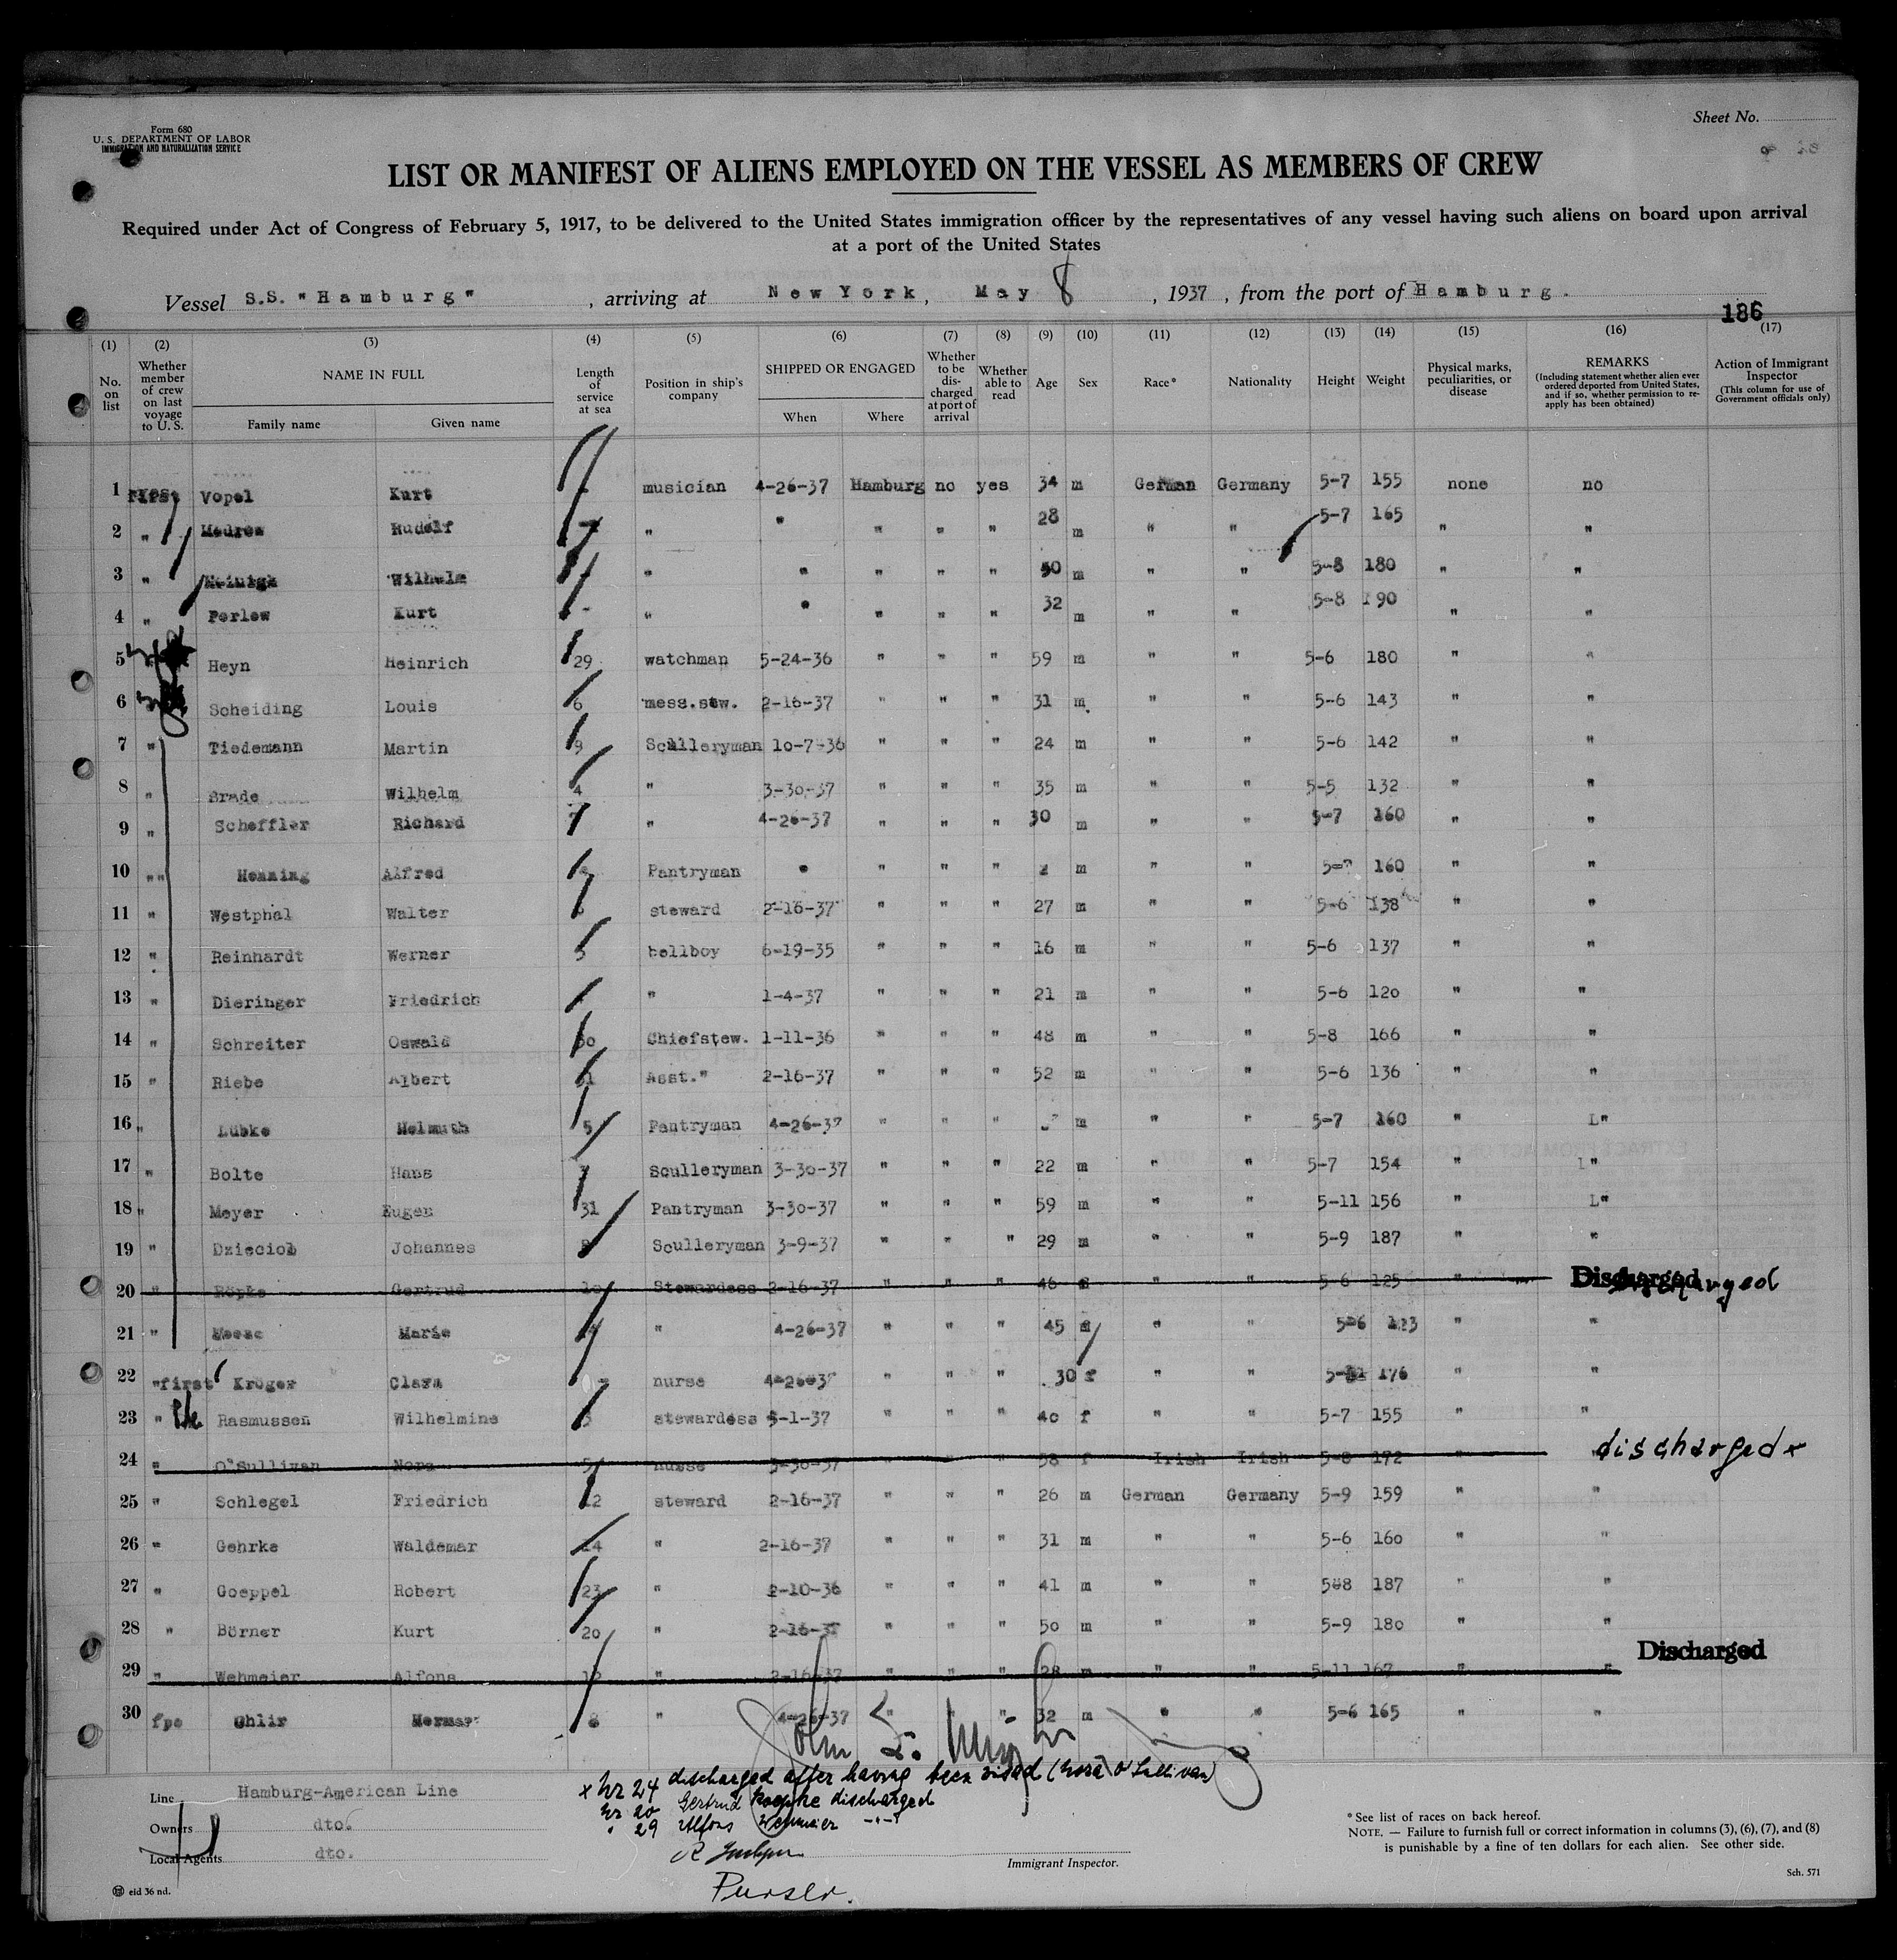 Form 680
U. S. DEPARTMENT OF LABOR
IMMIGRATION AND NATURALIZATION SERVICE
Sheet No.
LIST OR MANIFEST OF ALIENS EMPLOYED ON THE VESSEL AS MEMBERS OF CREW
Required under Act of Congress of February 5, 1917, to be delivered to the United States immigration officer by the representatives of any vessel having such aliens on board upon arrival
at a port of the United States
Vessel S.S. "Hamburg", arriving at New York, May 8, 1937, from the port of Hamburg.
186
(1) (2) (3) (4) (5) (6) (7) (8) (9) (10) (11) (12) (13) (14) (15) (16) (17)
No. on list
Whether member of crew on last voyage to U. S.
NAME IN FULL
Family name Given name
Length of service at sea
Position in ship's company
SHIPPED OR ENGAGED
When Where
Whether to be discharged at port of arrival
Whether able to read
Age
Sex
Race*
Nationality
Height
Weight
Physical marks, peculiarities, or disease
REMARKS
(Including statement whether alien ever ordered deported from United States, and if so, whether permission to reapply has been obtained)
Action of Immigrant Inspector
(This column for use of Government officials only)
1 Vopel Kurt musician 4-26-37 Hamburg no yes 34 m German Germany 5-7 155 none no
2 " Rudolf " " " " " 28 m " " 5-7 165 " "
3 " Wilhelm " " " " " m " " 5-8 180 " "
4 " Perlew Kurt " " " " " 32 m " " 5-8 190 " "
5 Heyn Heinrich 29 watchman 5-24-36 " " " 59 m " " 5-6 180 " "
6 Scheiding Louis 6 mess.stw. 2-16-37 " " " 31 m " " 5-6 143 " "
7 " Tiedemann Martin 9 Sculleryman 10-7-36 " " " 24 m " " 5-6 142 " "
8 " Brade Wilhelm 4 " 3-30-37 " " " 35 m " " 5-5 132 " "
9 " Scheffler Richard " 4-26-37 " " " 30 m " " 5-7 160 " "
10 " " Henning Alfred Pantryman " " " " m " " 160 " "
11 " Westphal Walter steward 2-16-37 " " " 27 m " " 5-6 138 " "
12 " Reinhardt Werner 3 bellboy 6-19-35 " " " 16 m " " 5-6 137 " "
13 " Dieringer Friedrich " 1-4-37 " " " 21 m " " 5-6 120 " "
14 " Schreiter Oswald 30 Chiefstew. 1-11-36 " " " 48 m " " 5-8 166 " "
15 " Riebe Albert Asst." 2-16-37 " " " 52 m " " 5-6 136 " "
16 " Lübke Helmuth 5 Pantryman 4-26-37 " " " m " " 5-7 160 " L"
17 " Bolte Hans Sculleryman 3-30-37 " " " 22 m " " 5-7 154 " "
18 " Meyer Eugen 31 Pantryman 3-30-37 " " " 59 m " " 5-11 156 " L"
19 " Dzieciol Johannes Sculleryman 3-9-37 " " " 29 m " " 5-9 187 " "
20 " Röpke Gertrud 10 Stewardess 2-16-37 " " " 46 f " " 5-6 125 " Discharged
21 " Marie " 4-26-37 " " " 45 f " " 5-6 123 " "
22 " first Kröger Clara nurse 4-26-37 " " " 30 f " " 176 " "
23 " Rasmussen Wilhelmine 3 stewardess 5-1-37 " " " 40 f " " 5-7 155 " "
24 " O'Sullivan Nora nurse 3-30-37 " " " 58 f Irish Irish 5-8 172 " " discharged x
25 " Schlegel Friedrich 12 steward 2-16-37 " " " 26 m German Germany 5-9 159 " "
26 " Gehrke Waldemar 14 " 2-16-37 " " " 31 m " " 5-6 160 " "
27 " Goeppel Robert 23 " 2-10-36 " " " 41 m " " 5-8 187 " "
28 " Börner Kurt 20 " 2-16-37 " " " 50 m " " 5-9 180 " "
29 " Wehmeier Alfons 12 " 2-16-37 " " " 28 m " " 5-11 167 " " Discharged
30 Herman 8 " 4-26-37 " " " 32 m " " 5-6 165 " "
x Nr 24 discharged after having been visad (Nora O'Sullivan)
Nr 20 Gertrud Roepke discharged
" 29 Alfons Wehmeier -"-
Purser.
Immigrant Inspector.
Line Hamburg-American Line
Owners dto.
Local Agents dto.
eid 36 nd.
*See list of races on back hereof.
NOTE. — Failure to furnish full or correct information in columns (3), (6), (7), and (8)
is punishable by a fine of ten dollars for each alien. See other side.
Sch. 571